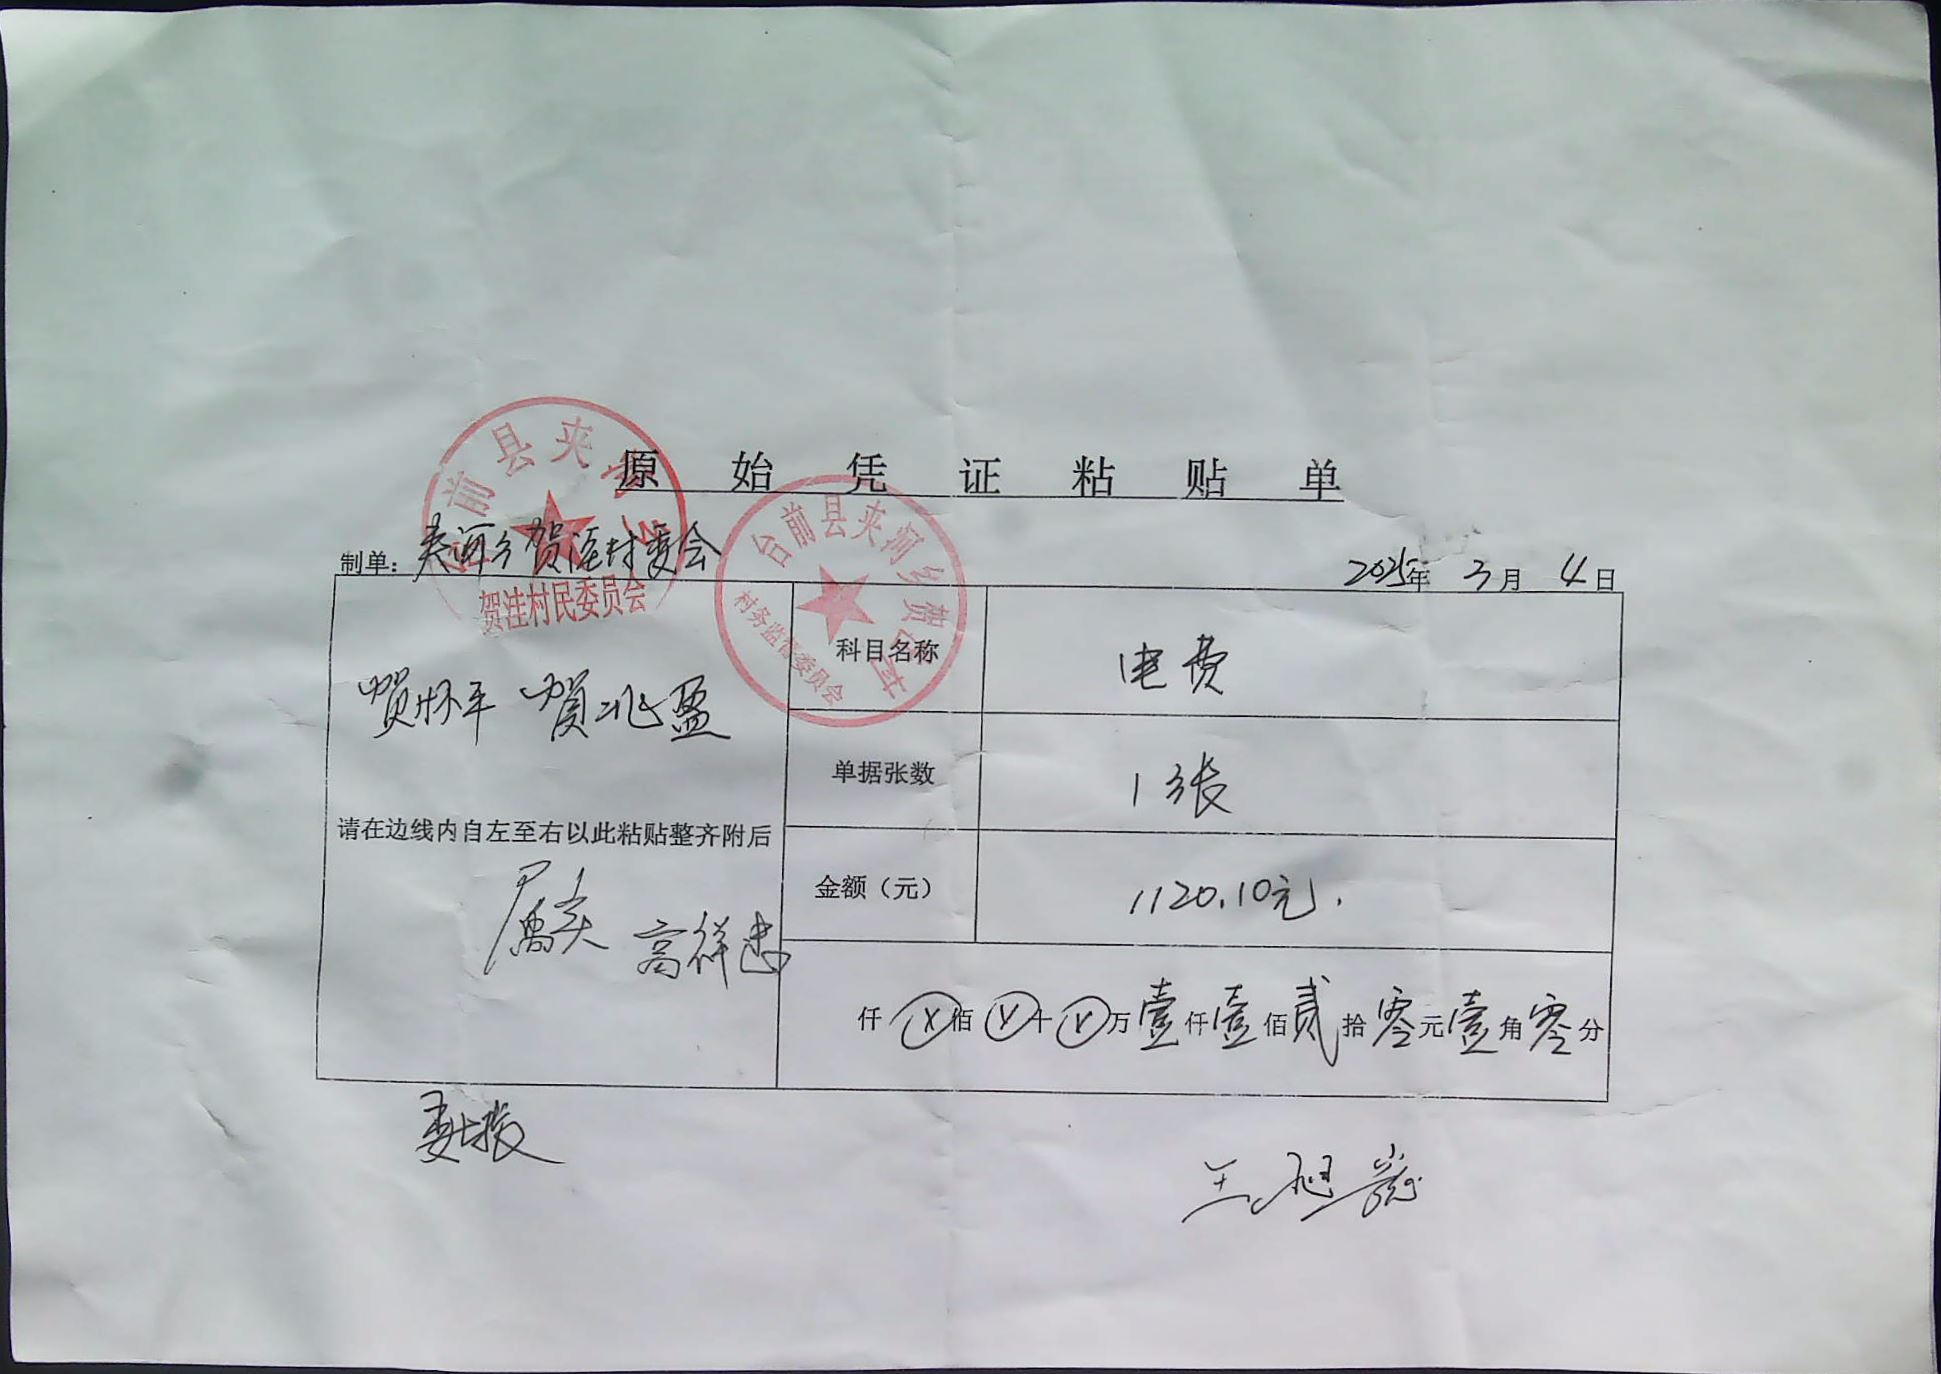 原始凭证粘贴单
制单：夹河乡贺洼村委会
2025年 3月 4日
台前县夹河乡
贺洼村民委员会
台前县夹河乡贺洼村
村务监督委员会
科目名称 电费
贺怀平 贺兆盈
单据张数 1张
请在边线内自左至右以此粘贴整齐附后
金额（元） 1120.10元.
高祥忠
仟 佰 十 万壹仟壹佰贰拾零元壹角零分